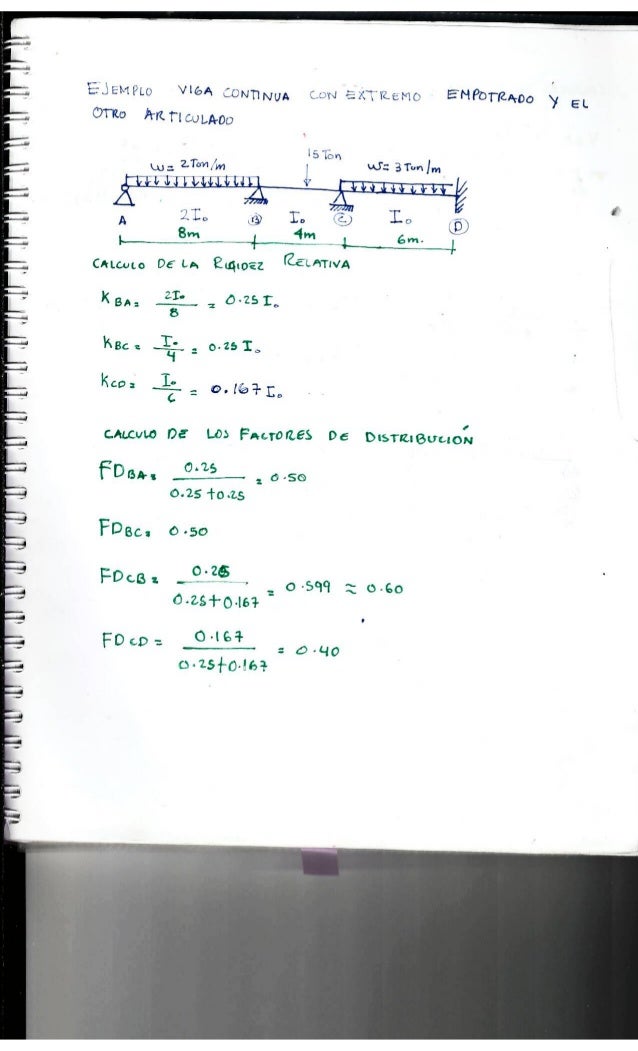 EJEMPLO VIGA CONTINUA CON EXTREMO EMPOTRADO Y EL
OTRO ARTICULADO
15 Ton
W= 2 Ton/m
W= 3 Ton/m
A 2I₀ B I₀ C I₀ D
8m 4m 6m.
CALCULO DE LA RIGIDEZ RELATIVA
K BA = 2I₀/8 = 0.25 I₀
KBC = I₀/4 = 0.25 I₀
KCD = I₀/6 = 0.167 I₀
CALCULO DE LOS FACTORES DE DISTRIBUCIÓN
FDBA = 0.25 / 0.25 + 0.25 = 0.50
FDBC = 0.50
FDCB = 0.25 / 0.25 + 0.167 = 0.599 ≈ 0.60
FDCD = 0.167 / 0.25 + 0.167 = 0.40